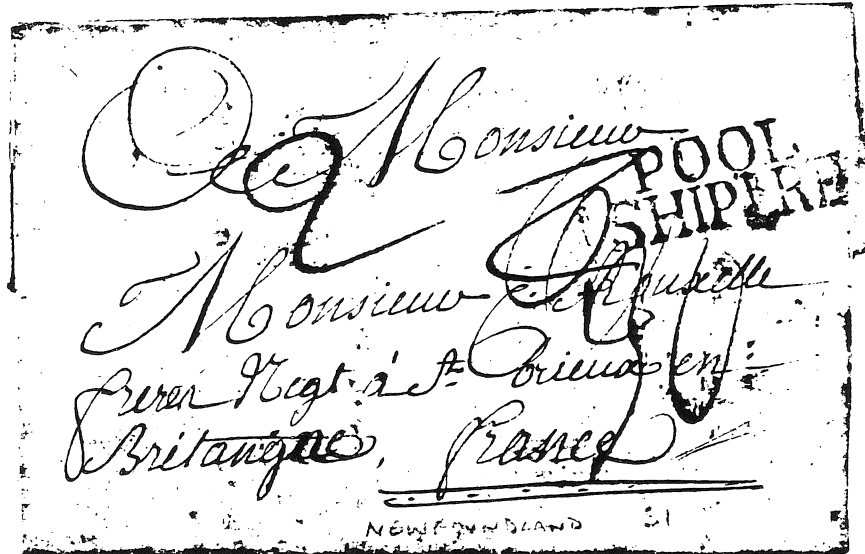 A Monsieur
POOL
SHIP LRE
Monsieur Rouxelle
freres Negt. à St. brieux en
Brétangne, france
NEWFOUNDLAND 31